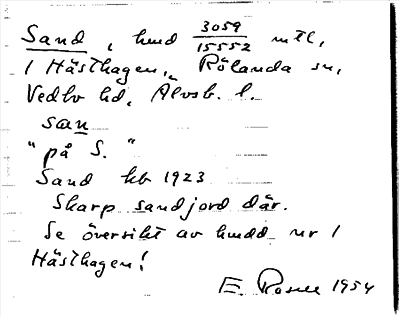 Sand, hmd 3059/15552 mtl,
1 Hästhagen, Rölanda sn,
Vedbo hd, Älvsb. l.
san
"på S."
Sand kb 1923
Skarp sandjord där.
Se översikt av hmdd nr 1
Hästhagen!
E. 1954